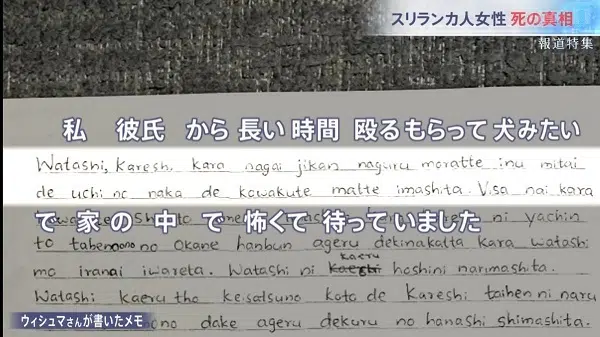 スリランカ人女性 死の真相
報道特集
私 彼氏 から 長い 時間 殴る もらって 犬みたい
Watashi, Karesh, kara nagai jikan naguru moratte inu mitai
de uchi no naka de kowakute matte imashita. Visa nai kara
で 家 の 中 で 怖くて 待って いました
ni yachin
to tabemono no Okane hanbun ageru dekinakatta kara watashi
mo iranai iwareta. Watashi ni kaeru hoshini narimashita.
Watashi kaeru tho keisatsuno koto de Kareshi taihen ni naru
ウィシュマさんが書いたメモ
dake ageru dekuru no hanashi shimashita.